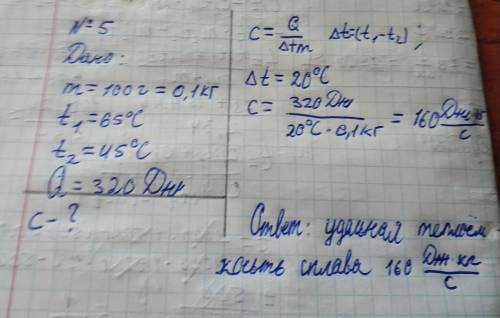 № 5
Дано:
m = 100 г = 0,1 кг
t₁ = 65°C
t₂ = 45°C
Q = 320 Дж
c - ?
c = Q / Δtm Δt = (t₁ - t₂);
Δt = 20°C
c = 320 Дж / 20°C · 0,1 кг = 160 Дж·кг / c
Ответ: удельная теплоём
кость сплава 160 Дж·кг / c